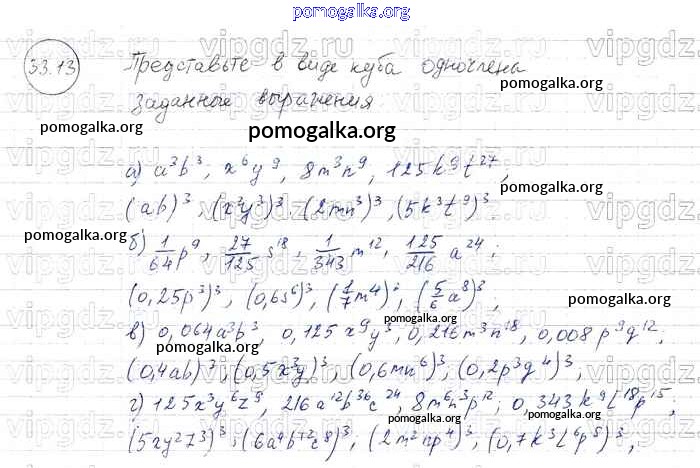 pomogalka.org
33.13 Представьте в виде куба одночлена
заданные выражения
pomogalka.org
pomogalka.org
pomogalka.org
а) a³b³; x⁶y⁹, 8m³n⁹, 125k⁹t²⁷,
(ab)³; (x²y³)³; (2mn³)³; (5k³t⁹)³.
pomogalka.org
pomogalka.org
б) 1/64 p⁹, 27/125 s¹⁸, 1/343 m¹², 125/216 a²⁴;
(0,25p³)³, (0,6s⁶)³, (1/7 m⁴)³, (5/6 a⁸)³,
pomogalka.org
pomogalka.org
в) 0,064a³b³, 0,125x⁹y³, 0,216m³n¹⁸, 0,008p⁹q¹²,
pomogalka.org
(0,4ab)³; (0,5x³y)³; (0,6mn⁶)³; (0,2p³q⁴)³
pomogalka.org
г) 125x³y⁶z⁹, 216a¹²b³⁶c²⁴, 8m⁶n³p¹², 0,343k⁹l¹⁸p¹⁵;
pomogalka.org
pomogalka.org
(5xy²z³)³; (6a⁴b¹²c⁸)³, (2m²np⁴)³; (0,7k³l⁶p⁵)³;
vipgdz.ru